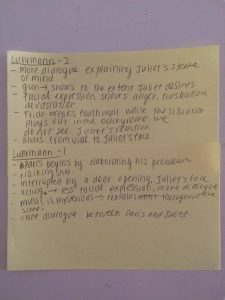 Luhrmann - 2
- More dialogue explaining Juliet's state
of mind
- Gun → shows to the extent Juliet desires
- Facial expression shows anger, frustration
devastation
- Friar breaks fourth wall while the situation
plays out in the background we
do not see Juliet's reaction
- Blurs from vial to Juliet's face.
Luhrmann - 1
- Paris begins by elaborating his problems
- interrupted by a door opening, Juliet's face
- acting → less facial expression, more dialogue
- music is mysterious → remains throughout the
scene.
- more dialogue between Paris and Juliet